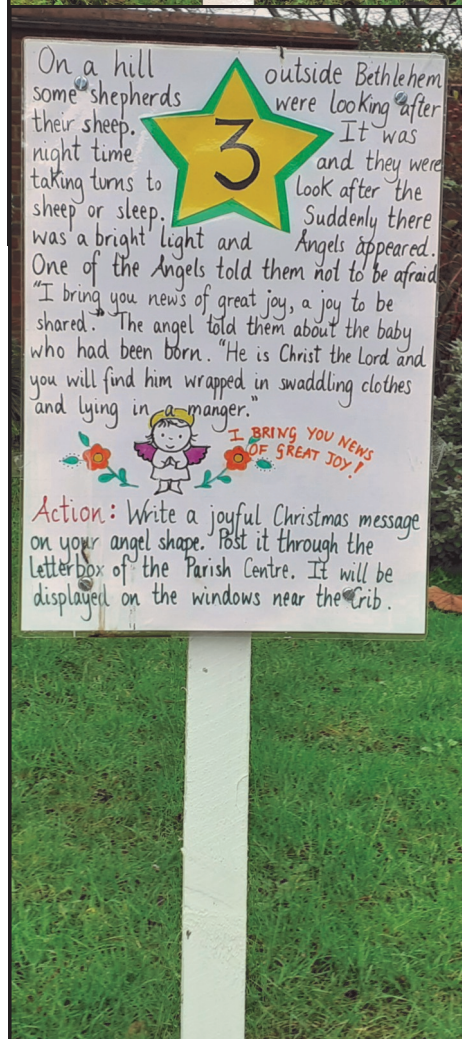 On a hill outside Bethlehem
some shepherds were looking after
their sheep. It was
3
night time and they were
taking turns to look after the
sheep or sleep. Suddenly there
was a bright light and Angels appeared.
One of the Angels told them not to be afraid
"I bring you news of great joy, a joy to be
shared." The angel told them about the baby
who had been born. "He is Christ the Lord and
you will find him wrapped in swaddling clothes
and lying in a manger."
I BRING YOU NEWS
OF GREAT JOY!
Action: Write a joyful Christmas message
on your angel shape. Post it through the
Letterbox of the Parish Centre. It will be
displayed on the windows near the Crib.